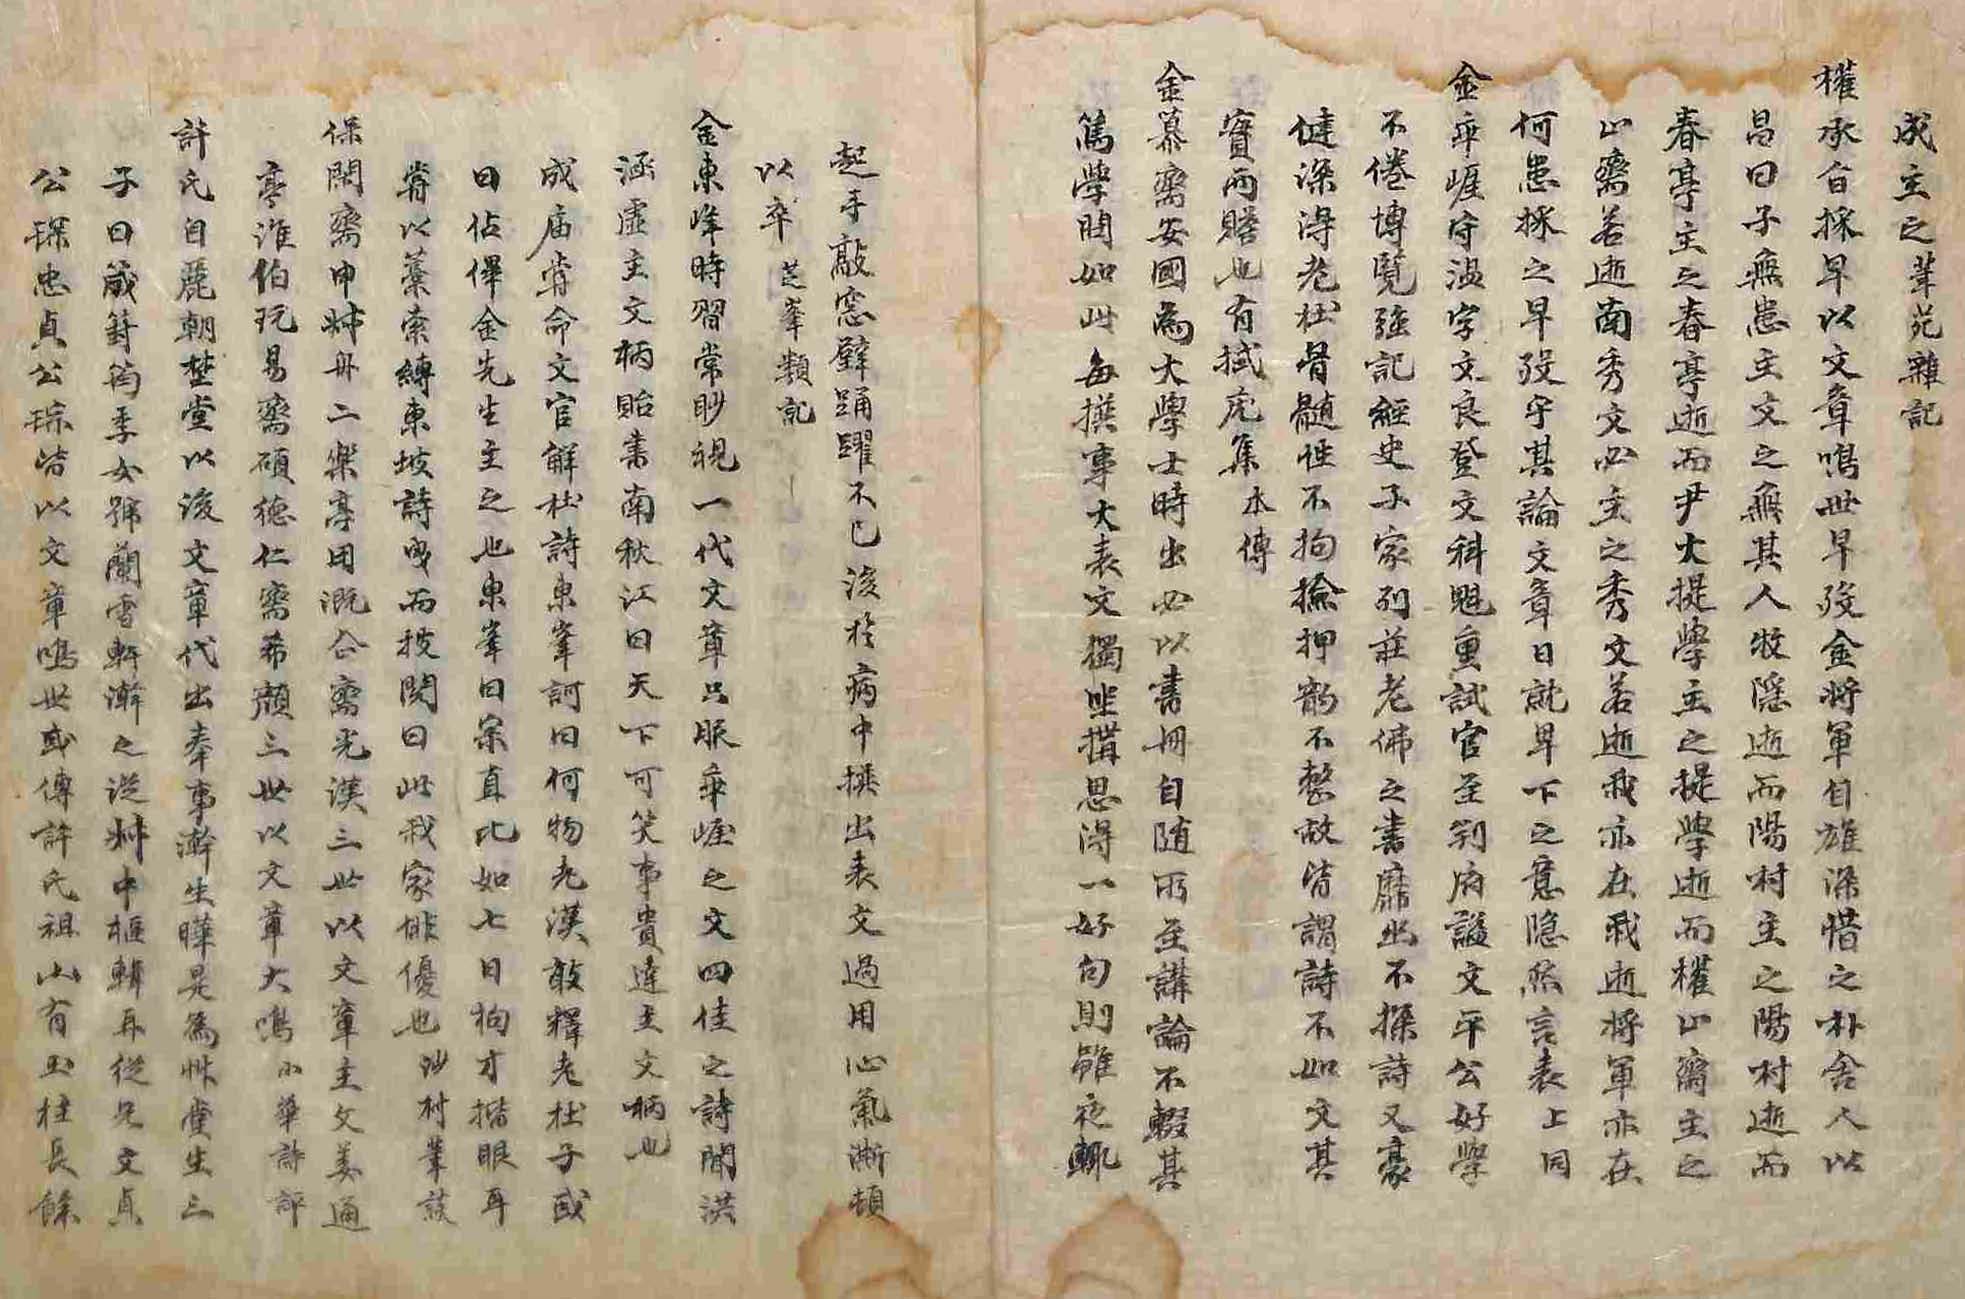 成主之 筆苑雜記
權承旨採早以文章鳴世早歿金將軍自雄深惜之朴舍人以
昌曰子無患主文之無其人牧隱逝而陽村主之陽村逝而
春亭主之春亭逝而尹大提學主之提學逝而權止齋主之
止齋若逝南秀文必主之秀文若逝我亦在我逝將軍亦在
何患採之早歿乎其論文章日就卑下之意隱然言表 上同
金乖崖守溫字文良登文科魁重試官至判府謚文平公好學
不倦博覽强記經史子家列莊老佛之書靡出不探詩又豪
健深得老杜骨髓性不拘撿押韵不整故皆謂詩不如文其
實兩贍也有拭疣集 本傳
金慕齋安國爲大學士時出必以書冊自随所至講論不輟其
篤學問如此每撰事大表文獨坐搆思得一好句則雖夜輒
起手敲窓壁踊躍不已後於病中撰出表文過用心氣漸頓
以卒 芝峯類記
金東峰時習常眇視一代文章只服乖崖之文四佳之詩聞洪
涵虛主文柄貽書南秋江曰天下可笑事貴達主文柄也
成庙嘗命文官解杜詩東峯訶曰何物老漢敢釋老杜子或
曰佔俾金先生主之也東峯曰宗直比如七日狗才揩眼耳
嘗以藁索縛東坡詩曳而披閱曰此我家俳優也 沙村筆談
保閑齋申叔舟二樂亭用漑企齋光漢三世以文章主文姜通
亭淮伯玩易齋碩德仁齋希顔三世以文章大鳴 小華詩評
許氏自麗朝埜堂以後文章代出奉事澣生曄是爲艸堂生三
子曰箴篈筠季女號蘭雪軒澣之從叔中樞輯再從兄文貞
公琛忠貞公琮皆以文章鳴世或傳許氏祖山有玉柱長餘